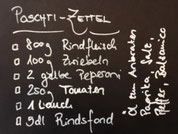 POSCHTI-ZETTEL
800g Rindfleisch
100g Zwiebeln
2 gelbe Peperoni
250g Tomaten
1 Lauch
9dl Rindsfond
Öl zum Anbraten
Paprika, Salz,
Pfeffer, Balsamico